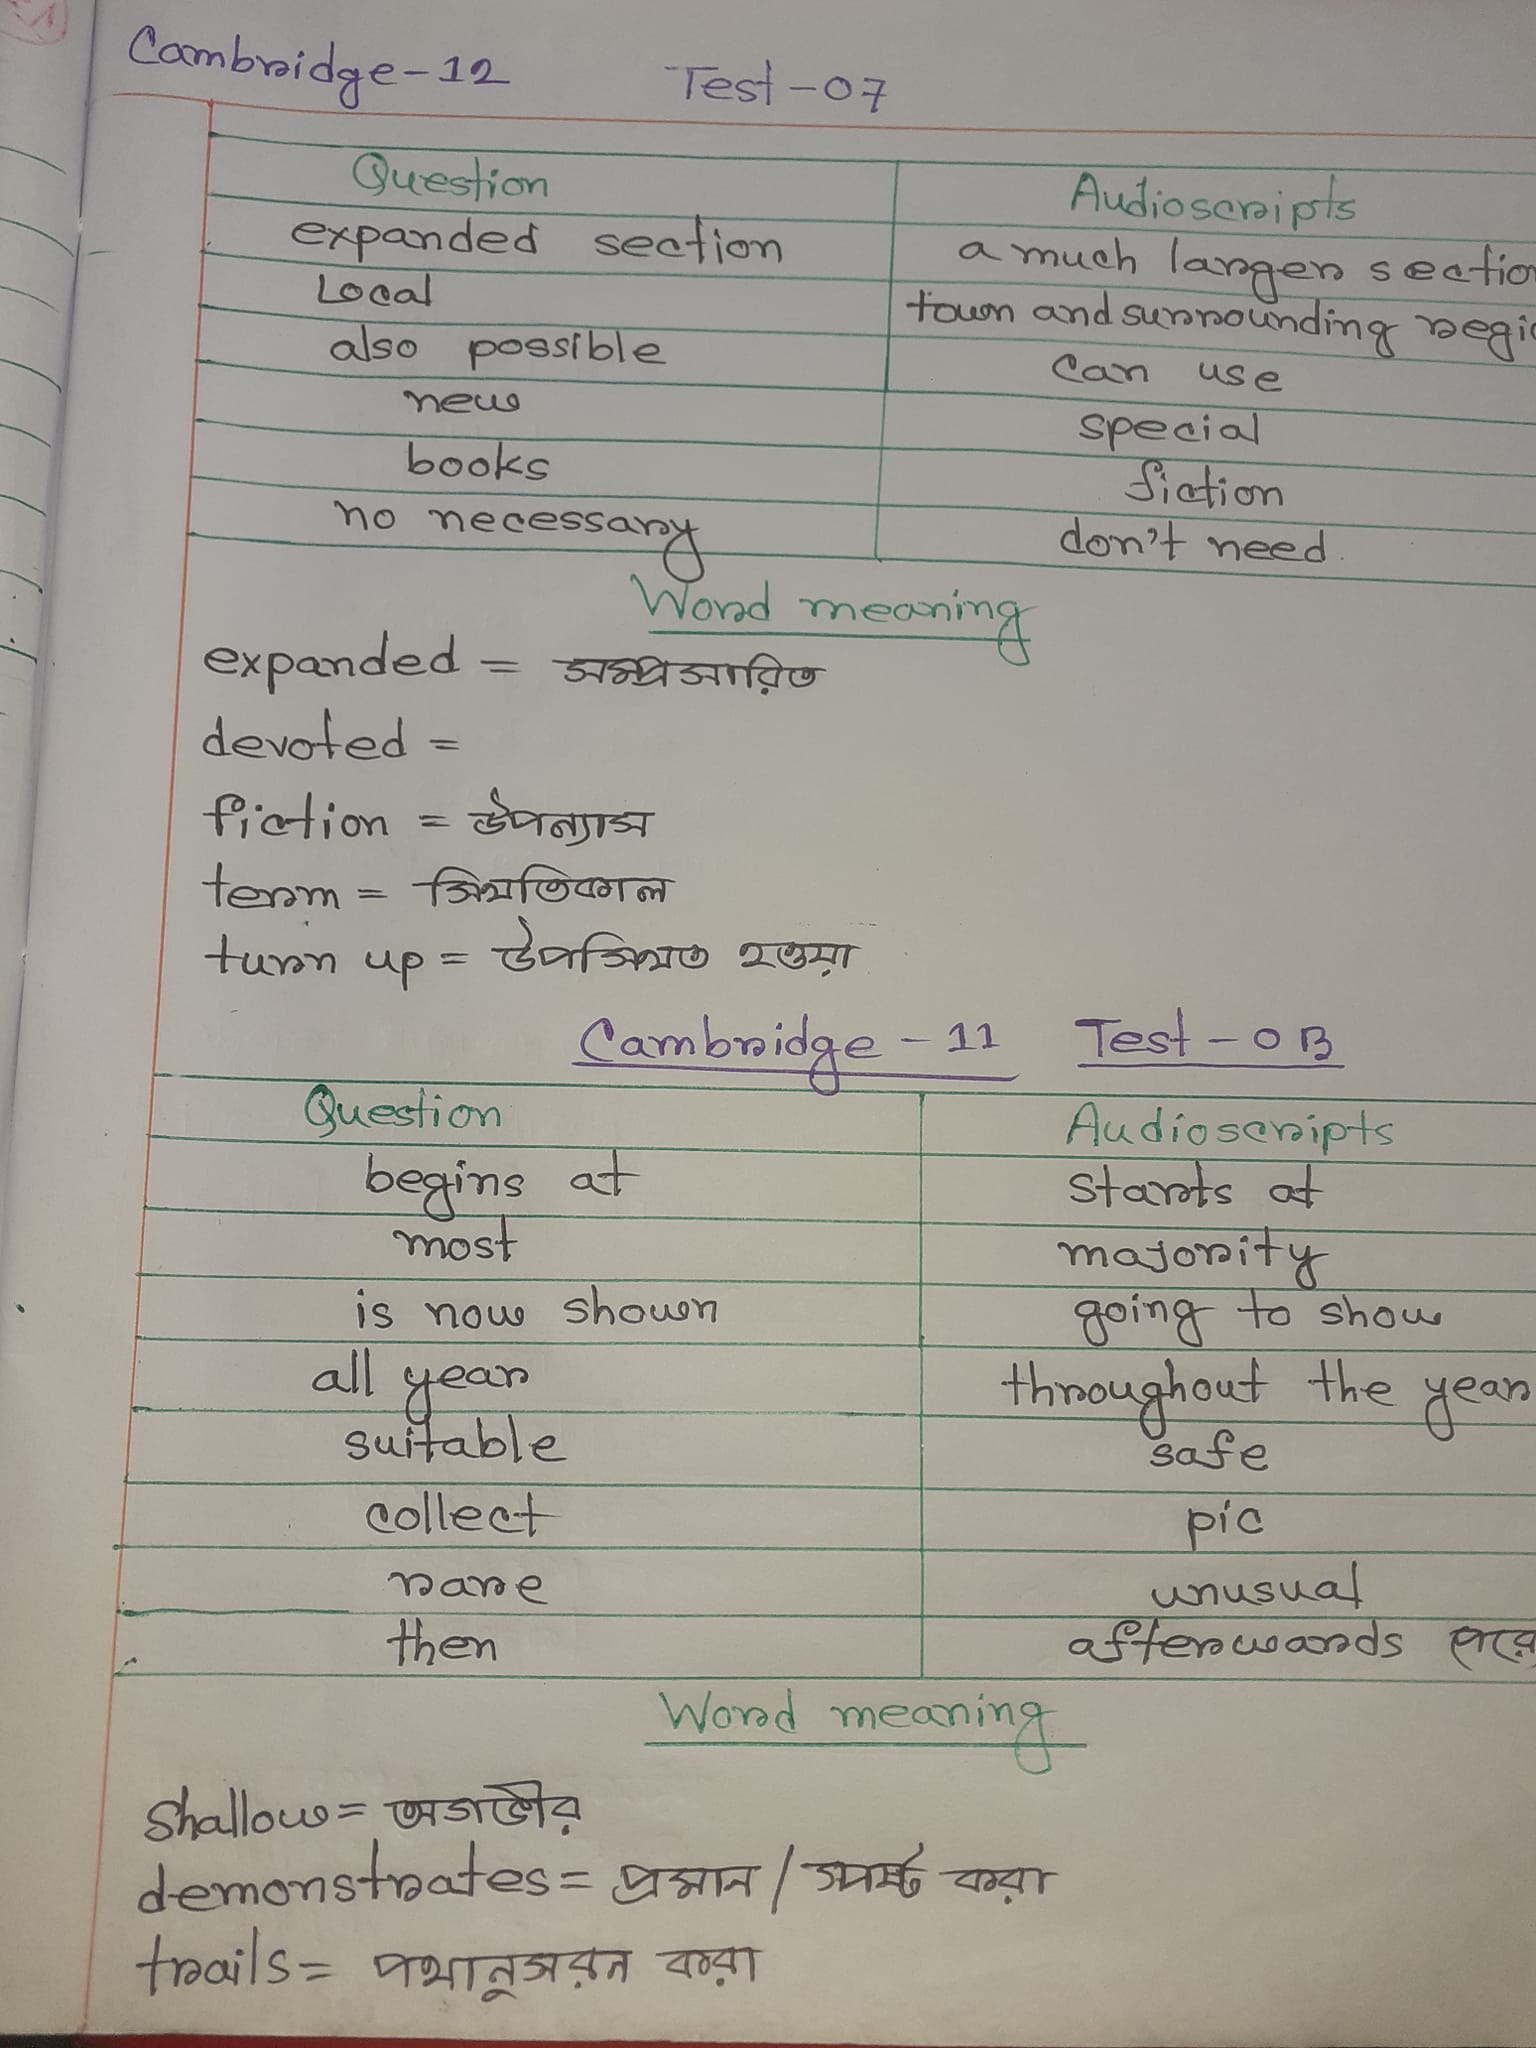 Cambridge-12 Test-07
Question Audioscripts
expanded section a much larger section
Local town and surrounding
also possible can use
new special
books fiction
no necessary don't need.
Word meaning
expanded = সম্প্রসারিত
devoted =
fiction = উপন্যাস
term = স্থিতিকাল
turn up = উপস্থিত হওয়া
Cambridge - 11 Test - 0B
Question Audioscripts
begins at starts at
most majority
is now shown going to show
all year throughout the year
suitable safe
collect pic
rare unusual
then afterwards পরে
Word meaning
Shallow = অগভীর
demonstrates = প্রমান / স্পষ্ট করা
trails = পথানুসরন করা